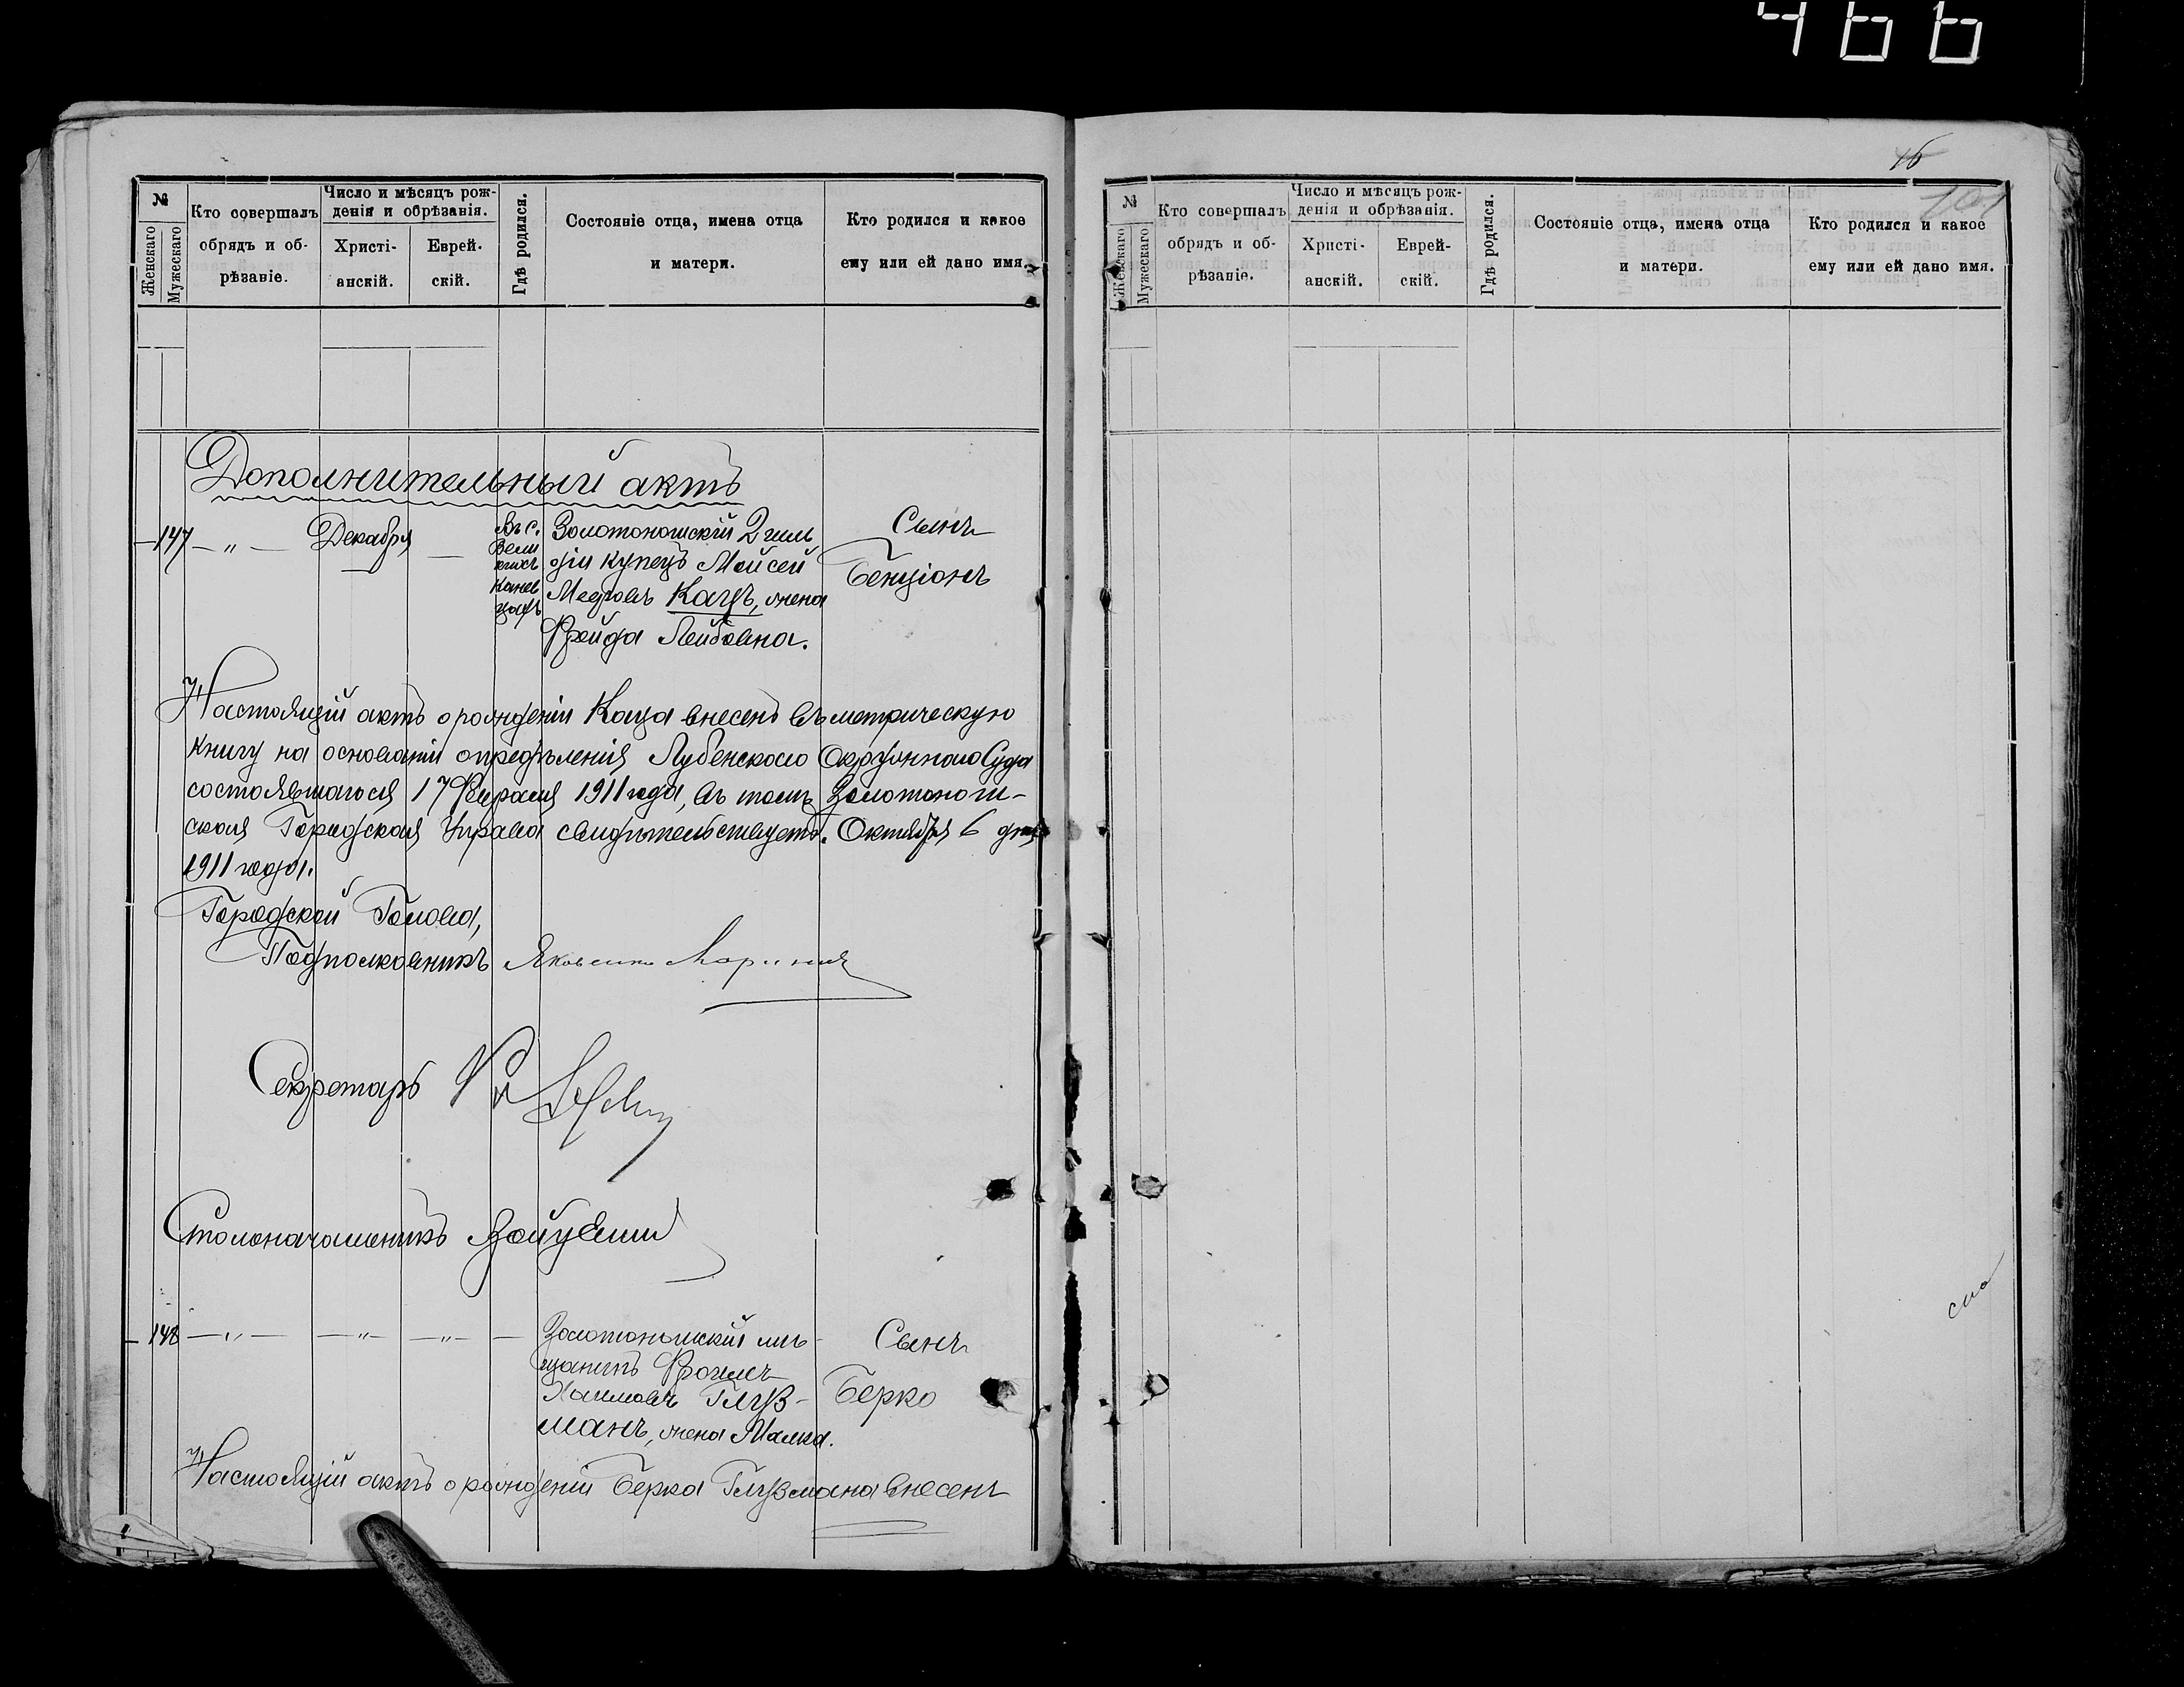 466
№
Женскаго
Мужескаго
Кто совершалъ
обрядъ и об-
рѣзаніе.
Число и мѣсяцъ рож-
денія и обрѣзанія.
Христі-
анскій.
Еврей-
скій.
Гдѣ родился.
Состояніе отца, имена отца
и матери.
Кто родился и какое
ему или ей дано имя.
Дополнительный актъ
147 — " — Декабря —
Въ с.
Вели
кихъ
Канев
цахъ
Золотоношскій 2 гиль
діи купецъ Мойсей
Мееровъ Кацъ, жена
Фрейда Лейбовна.
Сынъ
Бенціонъ
Настоящій актъ о рожденіи Каца внесенъ въ метрическую
книгу на основаніи опредѣленія Лубенскаго Окружнаго Суда
состоявшагося 17 Февраля 1911 года, въ томъ Золотонош-
ская Городская Управа свидѣтельствуетъ. Октября 6 дня
1911 года.
Городской Голова,
Подполковникъ
Секретарь
Столоначальникъ
148 — " — — " — — " — —
Золотоношскій мѣ-
щанинъ Фроимъ
Хаимовъ Глуз-
манъ, жена Малка.
Сынъ
Берко
Настоящій актъ о рожденіи Берка Глузмана внесенъ
№
Женскаго
Мужескаго
Кто совершалъ
обрядъ и об-
рѣзаніе.
Число и мѣсяцъ рож-
денія и обрѣзанія.
Христі-
анскій.
Еврей-
скій.
Гдѣ родился.
Состояніе отца, имена отца
и матери.
Кто родился и какое
ему или ей дано имя.